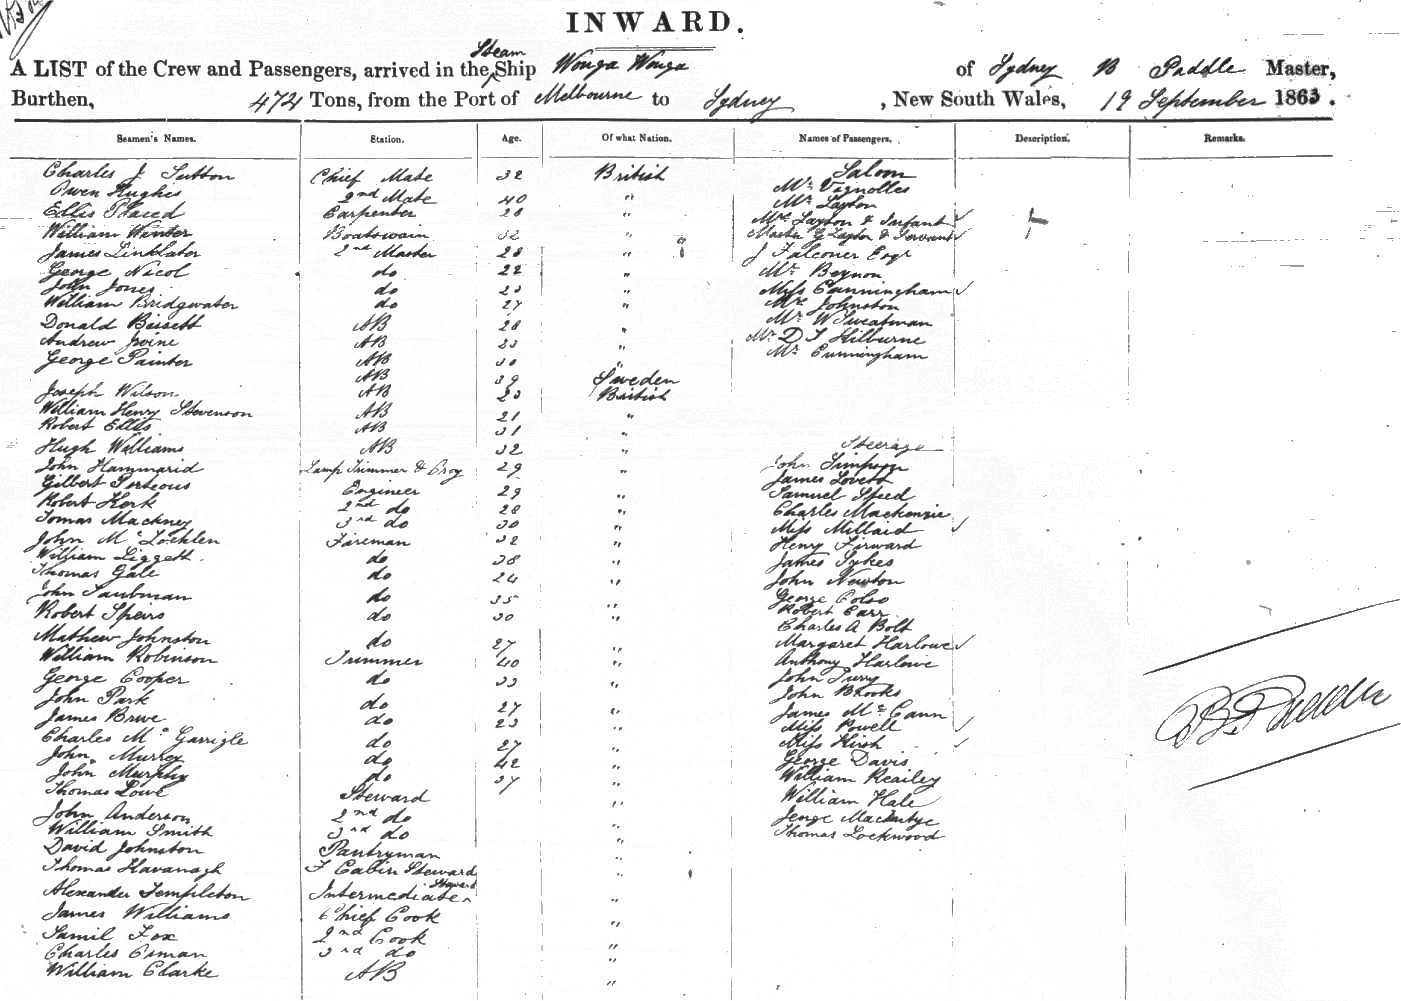 INWARD.
A LIST of the Crew and Passengers, arrived in the Steam Ship Wonga Wonga of Sydney B Paddle Master,
Burthen, 472 Tons, from the Port of Melbourne to Sydney, New South Wales, 19 September 1863.
Seamen's Names. Station. Age. Of what Nation. Names of Passengers. Description. Remarks.
Charles J Sutton Chief Mate 32 British Saloon
Owen Hughes 2nd Mate 40 " Mr Vignolles
Ellis Placed Carpenter 28 " Mr Layton
William Winter Boatswain 32 " Mrs Layton & Infant
James Linklator 2nd Master 28 " Master G Layton & Servant
George Nicol do 22 " J Falconer Esqr
John Jones do 23 " Mr Beynon
William Bridgwater do 27 " Miss Cunningham
Donald Bissett AB 28 " Mr Johnston
Andrew Irvine AB 23 " Mr W Sweatman
George Painter AB 30 " Mr D T Hilburne
AB 39 Sweden Mr Cunningham
Joseph Wilson AB 23 British
William Henry Stevenson AB 21 "
Robert Ellis AB 31 "
Hugh Williams AB 32 " Steerage
John Hammarid Lamp Trimmer & 29 " John Simpson
Gilbert Porteous Engineer 29 " James Lovett
Robert Kerk 2nd do 28 " Samuel Speed
Tomas Mackney 3rd do 30 " Charles Mackenzie
John Mc Lochlen Fireman 32 " Miss Millaid
William Liggett do 38 " Henry Forward
Thomas Gale do 24 " James Sykes
John Taubman do 35 " John Newton
Robert Speirs do 30 " George
Mathew Johnston do 27 " Robert Carr
William Robinson Trimmer 40 " Charles A Bolt
George Cooper do 33 " Margaret Harlowe
John Park do 27 " Anthony Harlowe
James Brwe do 23 " John Purry
Charles Mc Garrigle do 27 " John Brooks
John Murrey do 42 " James Mc Cann
John Murphy do 37 " Miss Powell
Thomas Lowe Steward " Miss Hirsh
John Anderson 2nd do " George Davis
William Smith 3rd do " William Reailey
David Johnston Pantryman " William Hale
Thomas Kavanagh F Cabin Steward "
Alexander Templeton Intermediate Steward " Thomas Lockwood
James Williams Chief Cook "
Samil Fox 2nd Cook "
Charles Osman 3rd do "
William Clarke AB "
B Paddle